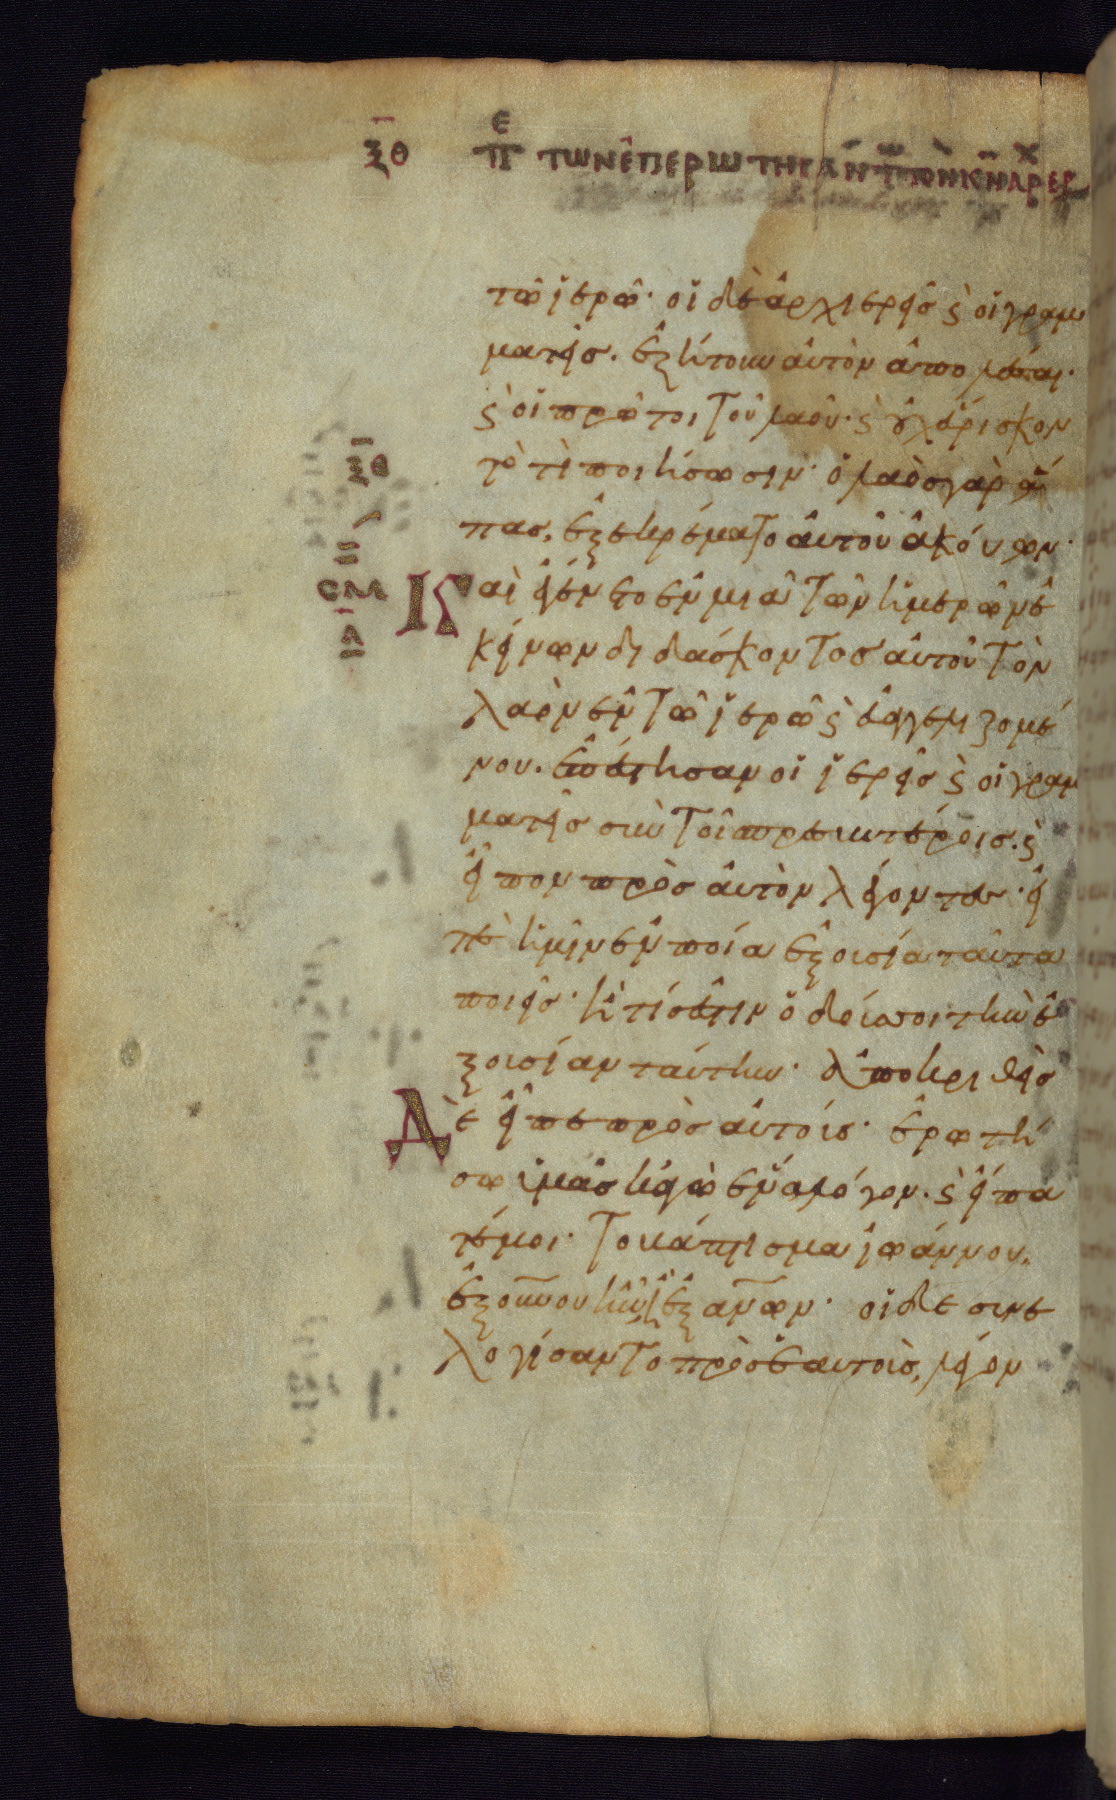 ξθ πε των επερωτησάντων τὸν κν ἀρχιερ
τῶ ἱερῶ· οἱ δὲ ἀρχιερεῖς ϛ οἱ γραμ
ματεῖς. ἐζήτουν αὐτὸν ἀπολέσαι·
ϛ οἱ πρῶτοι τοῦ λαοῦ· ϛ οὐχ εὕρισκον
τὸ τί ποιήσωσιν· ὁ λαὸς γὰρ ἅ
πας, ἐξεκρέματο αὐτοῦ ἀκούων·
ξθ
σμ
Καὶ ἐγένετο ἐν μιᾶ τῶν ἡμερῶν ἐ
κείνων διδάσκοντος αὐτοῦ τὸν
λαὸν ἐν τῶ ἱερῶ ϛ εὐαγγελιζομέ
νου. ἐπέστησαν οἱ ἱερεῖς ϛ οἱ γραμ
ματεῖς σὺν τοῖς πρεσβυτέροις. ϛ
εἶπον πρὸς αὐτὸν λέγοντες· εἰ
πὲ ἡμῖν ἐν ποία ἐξουσία ταῦτα
ποιεῖς· ἢ τίς ἐστιν ὁ δούς σοι τὴν ἐ
ξουσίαν ταύτην· ἀποκριθεὶς
Δὲ εἶπε πρὸς αὐτούς· ἐρωτή
σω ὑμᾶς κἀγὼ ἕνα λόγον. ϛ εἴπα
τέ μοι· τὸ βάπτισμα ἰωάννου,
ἐξ οὐνου ἦν ἢ ἐξ ἀνων· οἱ δὲ συνε
λογίσαντο πρὸς ἑαυτοὺς, λέγον